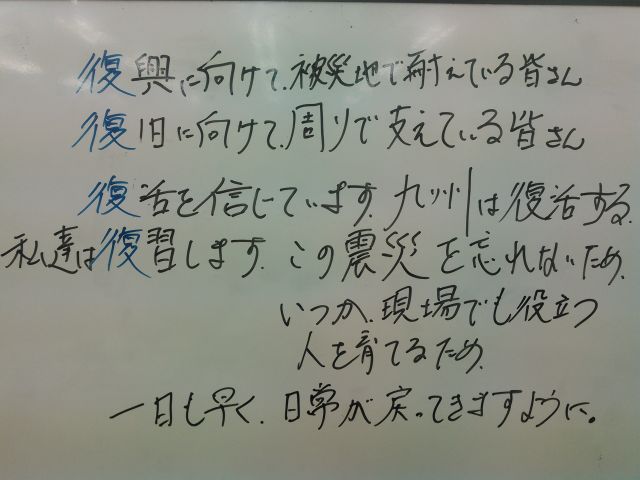 復興に向けて、被災地で耐えている皆さん
復旧に向けて、周りで支えている皆さん
復活を信じています。九州は復活する。
私達は復習します。この震災を忘れないため。
いつか、現場でも役立つ
人を育てるため。
一日も早く、日常が戻ってきますように。